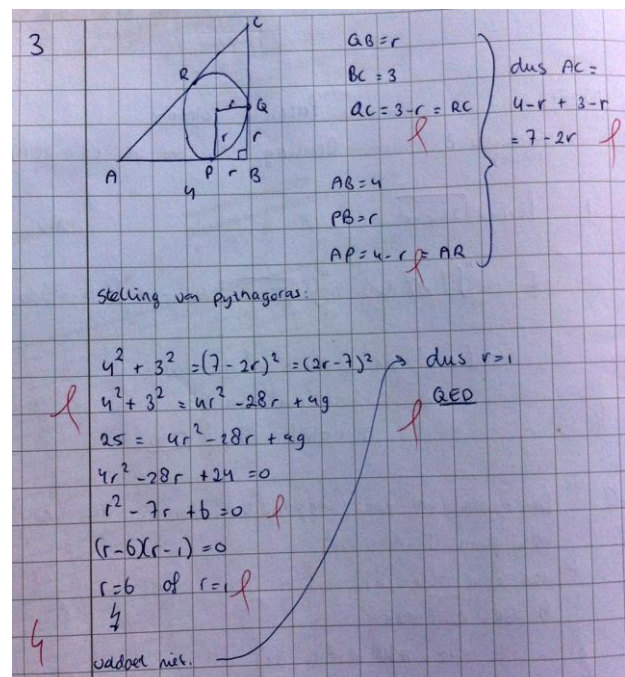 3
C
R
r
Q
r
r
A
P
r
B
4
QB=r
BC = 3
QC = 3-r = RC
AB = 4
PB = r
AP = 4-r = AR
dus AC =
4-r + 3-r
= 7-2r
Stelling van pythagoras:
4² + 3² = (7-2r)² = (2r-7)²
4² + 3² = 4r² - 28r + 49
25 = 4r² - 28r + 49
4r² - 28r + 24 = 0
r² - 7r + 6 = 0
(r-6)(r-1) = 0
r=6 of r=1
↯
voldoet niet.
dus r=1
QED
4